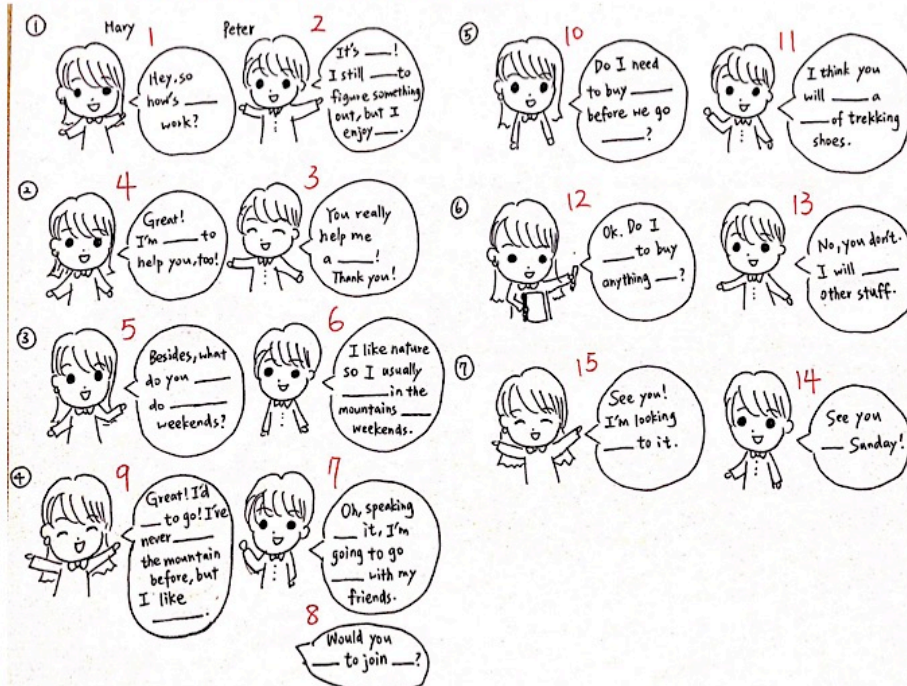 ① Mary 1 Peter 2
Hey, so
how's ____
work?
It's ____!
I still ____ to
figure something
out, but I
enjoy ____.
② 4 3
Great!
I'm ____ to
help you, too!
You really
help me
a ____!
Thank you!
③ 5 6
Besides, what
do you ____
do ____
weekends?
I like nature
so I usually
____ in the
mountains ____
weekends.
④ 9 7
Great! I'd
____ to go! I've
never ____
the mountain
before, but
I like
____.
Oh, speaking
____ it, I'm
going to go
____ with my
friends.
8
Would you
____ to join ____?
⑤ 10 11
Do I need
to buy ____
before we go
____?
I think you
will ____ a
____ of trekking
shoes.
⑥ 12 13
Ok. Do I
____ to buy
anything ____?
No, you don't.
I will ____
other stuff.
⑦ 15 14
See you!
I'm looking
____ to it.
See you
____ Sunday!